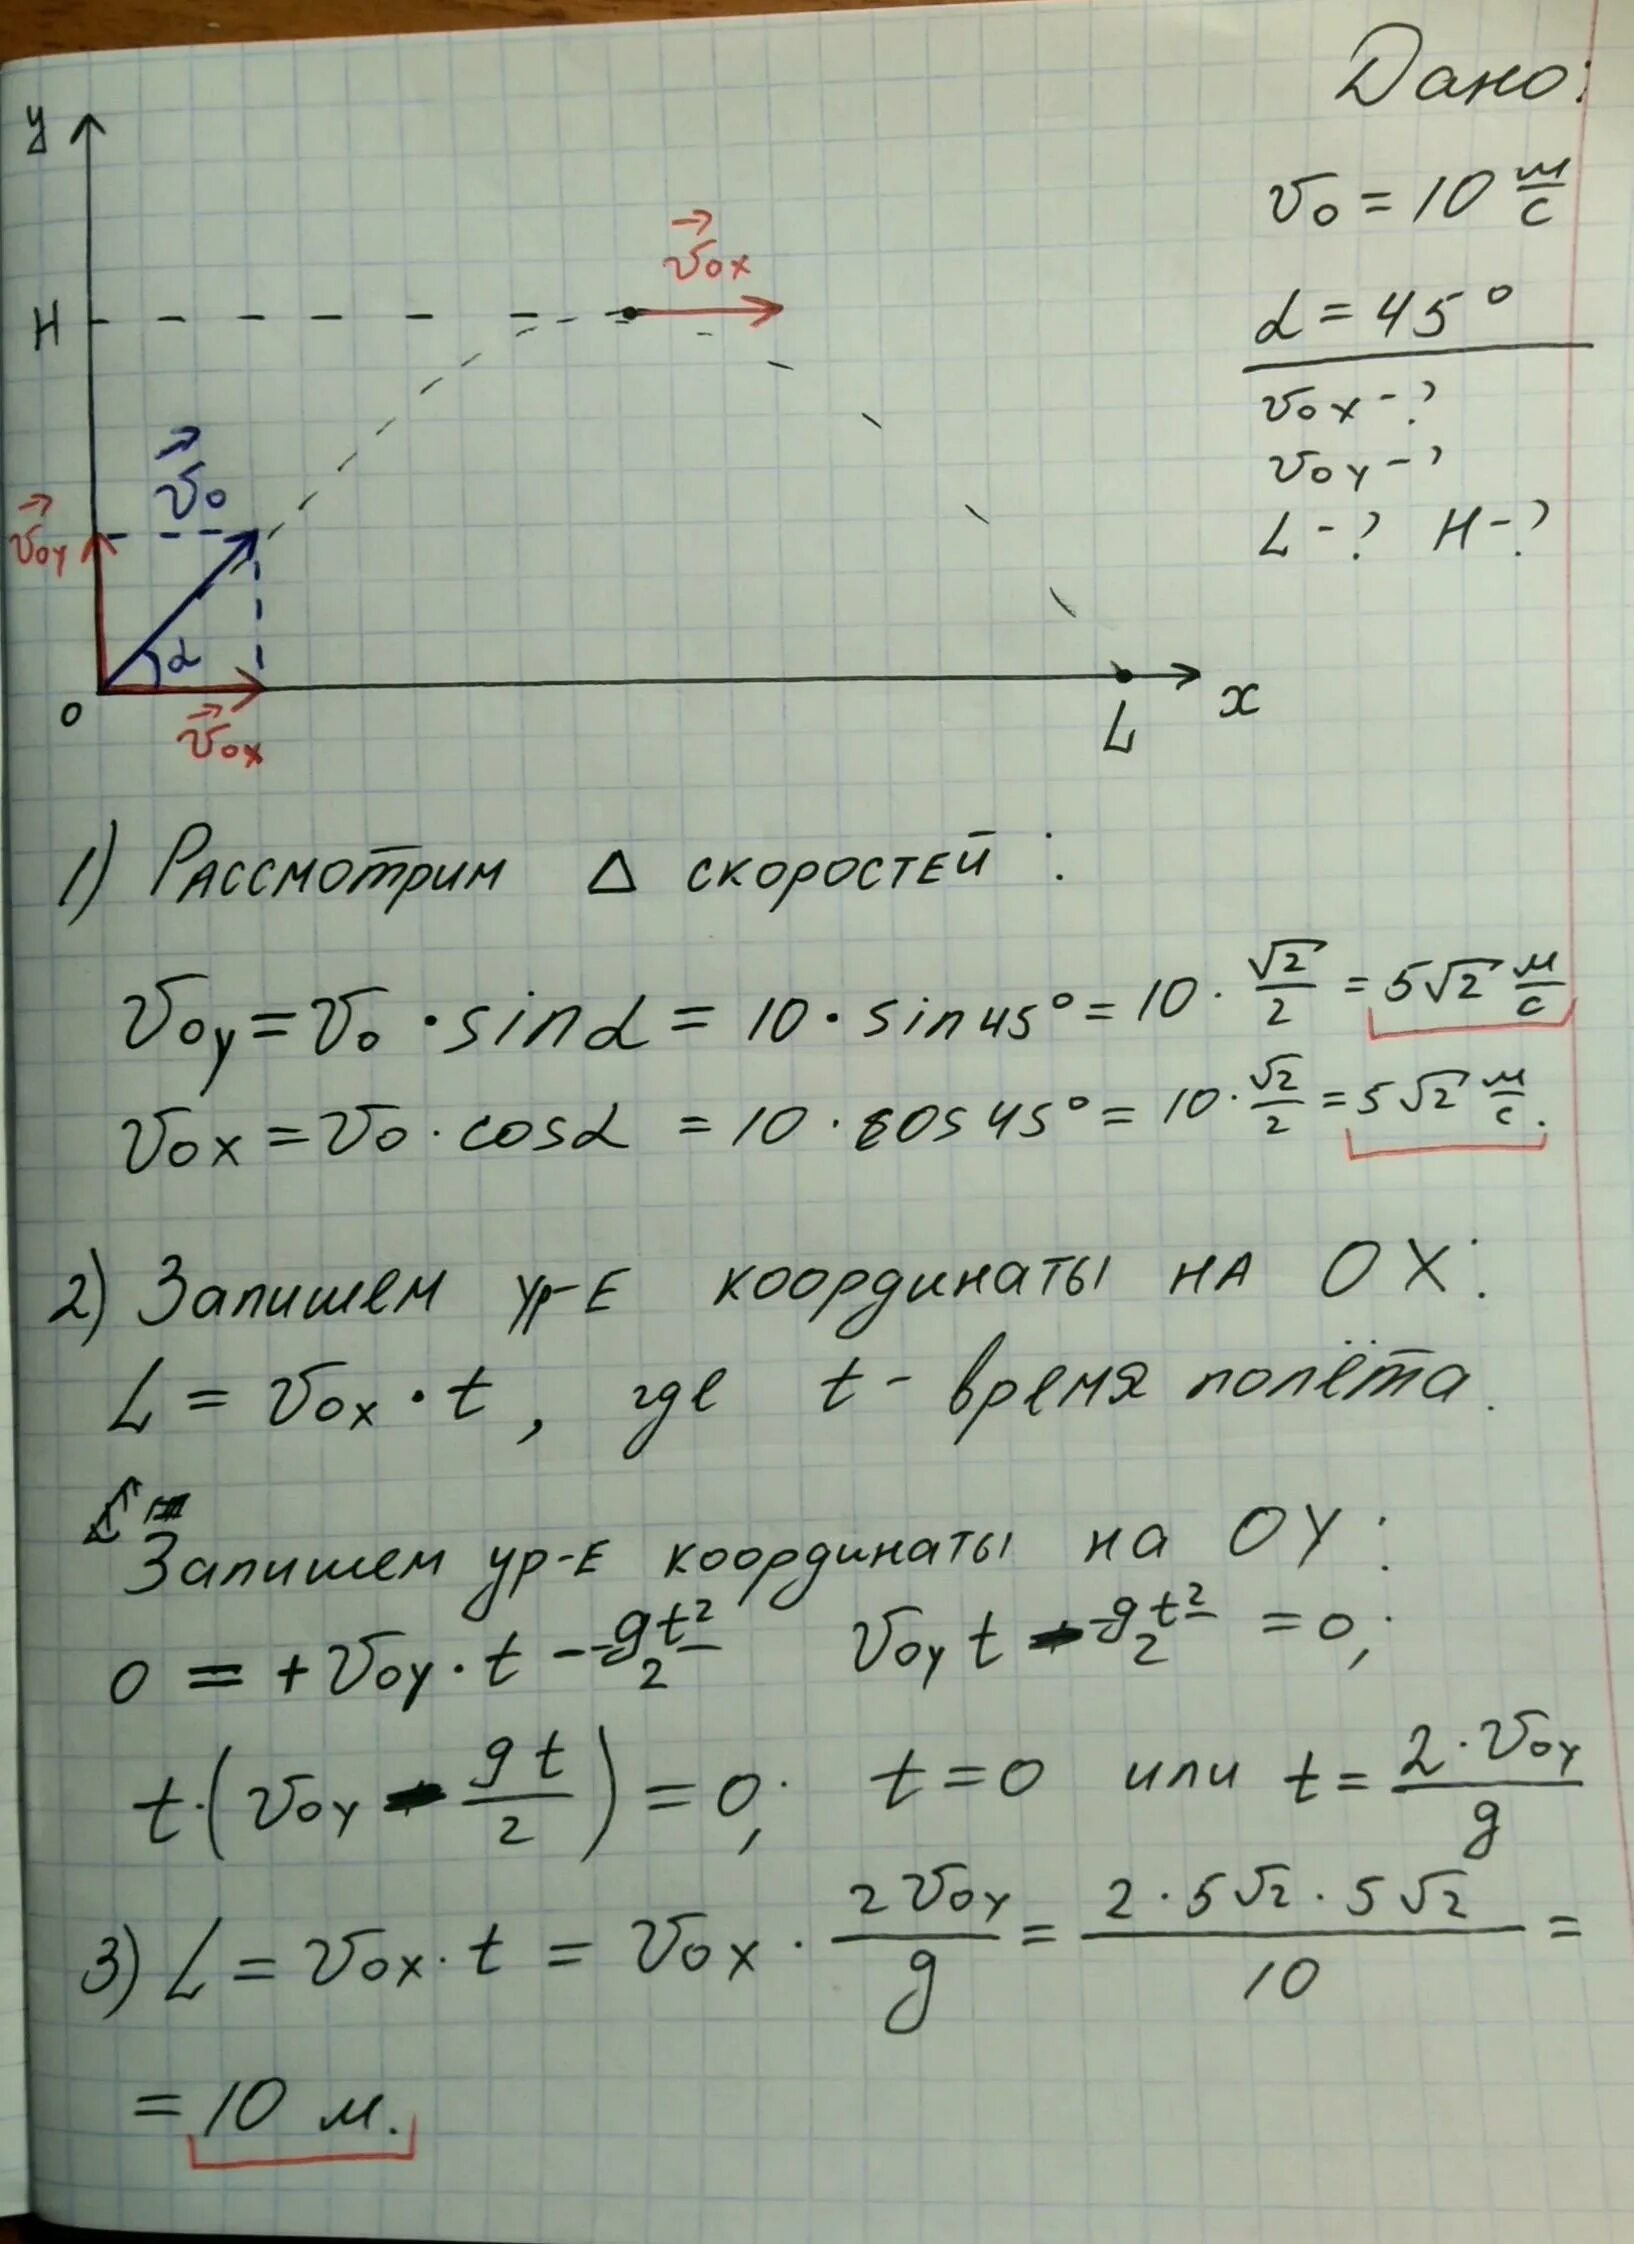 Дано:
y
v₀ = 10 м/с
v⃗₀ₓ
H
α = 45°
v₀ₓ - ?
v⃗₀
v₀ᵧ - ?
v⃗₀ᵧ
L - ? H - ?
α
0
v⃗₀ₓ
L
x
1) Рассмотрим Δ скоростей:
v₀ᵧ = v₀ · sinα = 10 · sin45° = 10 · √2/2 = 5√2 м/с
v₀ₓ = v₀ · cosα = 10 · cos45° = 10 · √2/2 = 5√2 м/с.
2) Запишем ур-е координаты на OX:
L = v₀ₓ · t, где t - время полёта.
Запишем ур-е координаты на OY:
0 = + v₀ᵧ · t - gt²/2 v₀ᵧt - gt²/2 = 0;
t · (v₀ᵧ - gt/2) = 0; t = 0 или t = 2 · v₀ᵧ/g
3) L = v₀ₓ · t = v₀ₓ · 2v₀ᵧ/g = 2 · 5√2 · 5√2/10 =
= 10 м.